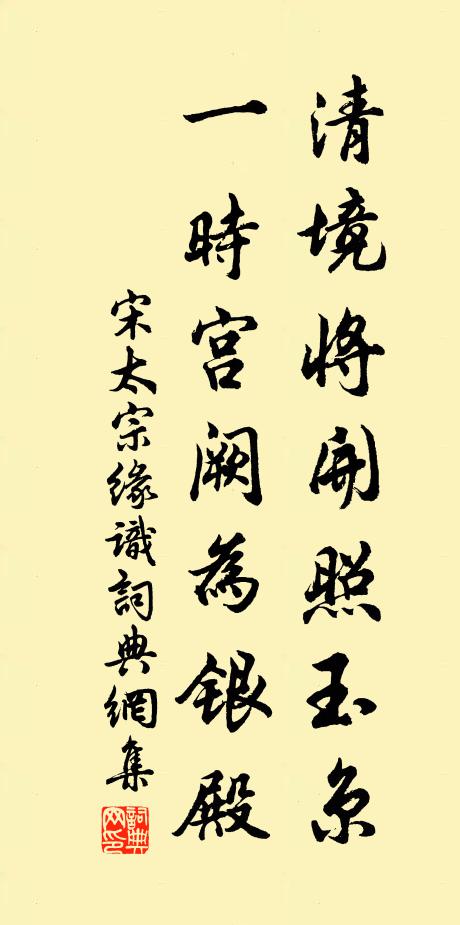 清境將開照玉京
一時宮闕為銀殿
宋太宗緣識詞典網集
詞典网印